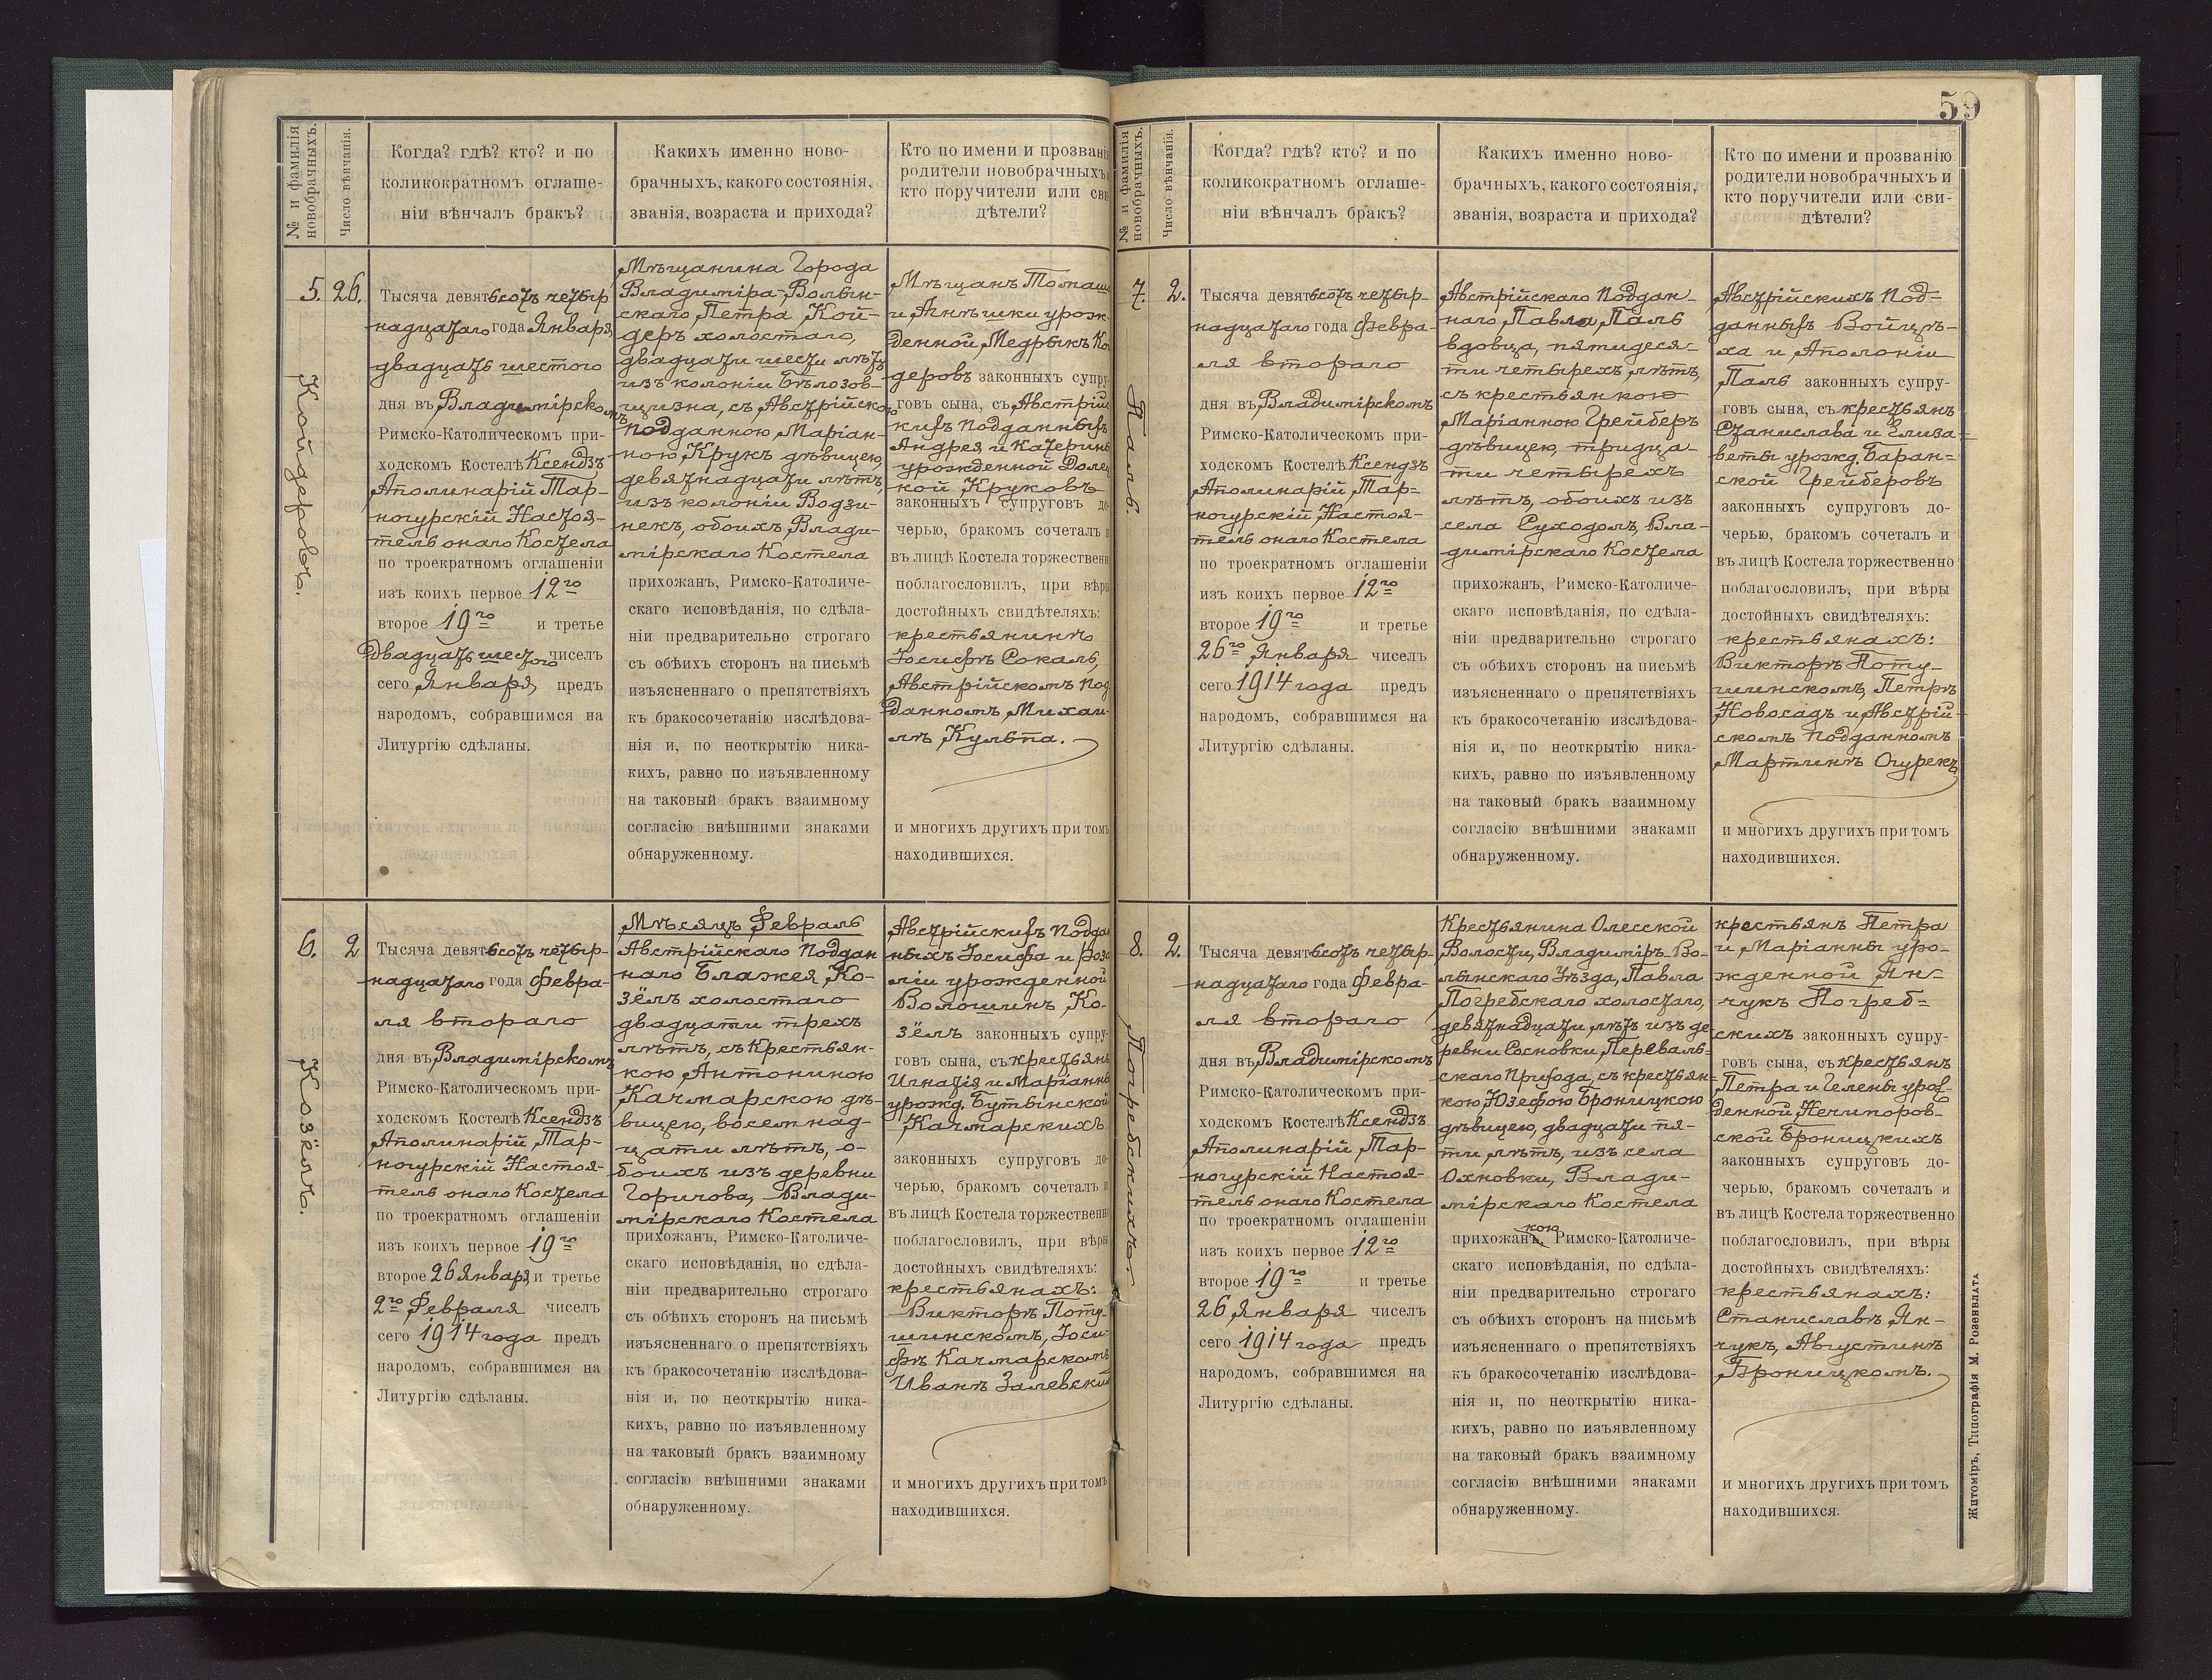 59
№ и фамилія новобрачныхъ.
Число вѣнчанія.
Когда? гдѣ? кто? и по
коликократномъ оглаше-
ніи вѣнчалъ бракъ?
Какихъ именно ново-
брачныхъ, какого состоянія,
званія, возраста и прихода?
Кто по имени и прозванi
родители новобрачныхъ
кто поручители или сви
дѣтели?
5.
Койдеровъ.
26.
Тысяча девятьсотъ четыр
надцатаго года Января
двадцать шестого
дня въ Владимірскомъ
Римско-Католическомъ при-
ходскомъ Костелѣ Ксендзъ
Аполинарій Тар-
ногурскій Настоя-
тель онаго Костела
по троекратномъ оглашеніи
изъ коихъ первое 12го
второе 19го и третье
Двадцать шестого чиселъ
сего Января предъ
народомъ, собравшимся на
Литургію сдѣланы.
Мѣщанина Города
Владиміра-Волын-
скаго Петра Кой-
деръ холостаго,
двадцати шести лѣтъ
изъ колоніи Бѣлозов-
щизна, съ Австрійскою
подданною Маріан-
ною Крукъ дѣвицею,
девятнадцати лѣтъ,
изъ колоніи Водзи-
некъ, обоихъ Влади-
мірскаго Костела
прихожанъ, Римско-Католиче-
скаго исповѣданія, по сдѣла-
ніи предварительно строгаго
съ обѣихъ сторонъ на письмѣ
изъясненнаго о препятствіяхъ
къ бракосочетанію изслѣдова-
нія и, по неоткрытію ника-
кихъ, равно по изъявленному
на таковый бракъ взаимному
согласію внѣшними знаками
обнаруженному.
Мѣщанъ Томаша
и Агнѣшки урож-
денной Медрыкъ Кой
деровъ законныхъ супру
говъ сына, съ Австрій
кихъ подданныхъ
Андрея и Катерины
урожденной Долец
кой Круковъ
законныхъ супруговъ до
черью, бракомъ сочеталъ и
въ лицѣ Костела торжественн
поблагословилъ, при вѣры
достойныхъ свидѣтеляхъ:
крестьянинѣ
Іосифѣ Сокалъ,
Австрійскомъ под
данномъ Михаи-
лѣ Кульпа.
и многихъ другихъ при томъ
находившихся.
6.
Козёлъ.
2
Тысяча девятьсотъ четыр-
надцатаго года Февра-
ля втораго
дня въ Владимірскомъ
Римско-Католическомъ при-
ходскомъ Костелѣ Ксендзъ
Аполинарій Тар-
ногурскій Настоя-
тель онаго Костела
по троекратномъ оглашеніи
изъ коихъ первое 19го
второе 26 Января и третье
2го Февраля чиселъ
сего 1914 года предъ
народомъ, собравшимся на
Литургію сдѣланы.
Мѣсяцъ Февраль
Австрійскаго поддан
наго Блажея Ко-
зёлъ холостаго
двадцати трехъ
лѣтъ, съ Крестьян-
кою Антониною
Качмарскою дѣ-
вицею, восемнад-
цати лѣтъ, о-
боихъ изъ деревни
Горичова, Влади-
мірскаго Костела
прихожанъ, Римско-Католиче-
скаго исповѣданія, по сдѣла-
ніи предварительно строгаго
съ обѣихъ сторонъ на письмѣ
изъясненнаго о препятствіяхъ
къ бракосочетанію изслѣдова-
нія и, по неоткрытію ника-
кихъ, равно по изъявленному
на таковый бракъ взаимному
согласію внѣшними знаками
обнаруженному.
Австрійскихъ поддан
ныхъ Іосифа и Роза
ліи урожденной
Волошинъ Ко-
зёлъ законныхъ супру
говъ сына, съ крестьянъ
Игнатія и Маріанны
урожд. Бутынской
Качмарскихъ
законныхъ супруговъ до
черью, бракомъ сочеталъ и
въ лицѣ Костела торжественн
поблагословилъ, при вѣры
достойныхъ свидѣтеляхъ:
крестьянахъ:
Викторѣ Поту-
шинскомъ, Іоси-
фѣ Качмарскомъ
Иванѣ Залевский
и многихъ другихъ при томъ
находившихся.
№ и фамилія новобрачныхъ.
Число вѣнчанія.
Когда? гдѣ? кто? и по
коликократномъ оглаше-
ніи вѣнчалъ бракъ?
Какихъ именно ново-
брачныхъ, какого состоянія,
званія, возраста и прихода?
Кто по имени и прозванію
родители новобрачныхъ и
кто поручители или сви-
дѣтели?
7.
Паль
2.
Тысяча девятьсотъ четыр-
надцатаго года Февра-
ля втораго
дня въ Владимірскомъ
Римско-Католическомъ при-
ходскомъ Костелѣ Ксендзъ
Аполинарій Тар-
ногурскій Настоя-
тель онаго Костела
по троекратномъ оглашеніи
изъ коихъ первое 12го
второе 19го и третье
26го Января чиселъ
сего 1914 года предъ
народомъ, собравшимся на
Литургію сдѣланы.
Австрійскаго поддан-
наго Павла Паль
вдовца, пятидеся-
ти четырехъ лѣтъ,
съ крестьянкою
Маріанною Грейберъ
дѣвицею, тридца-
ти четырехъ
лѣтъ, обоихъ изъ
села Суходолъ, Вла-
димірскаго Костела
прихожанъ, Римско-Католиче-
скаго исповѣданія, по сдѣла-
ніи предварительно строгаго
съ обѣихъ сторонъ на письмѣ
изъясненнаго о препятствіяхъ
къ бракосочетанію изслѣдова-
нія и, по неоткрытію ника-
кихъ, равно по изъявленному
на таковый бракъ взаимному
согласію внѣшними знаками
обнаруженному.
Австрійскихъ под-
данныхъ Войцѣ-
ха и Аполоніи
Паль законныхъ супру-
говъ сына, съ крестьянъ
Станислава и Елиза-
веты урожд. Баран-
ской Грейберовъ
законныхъ супруговъ до-
черью, бракомъ сочеталъ и
въ лицѣ Костела торжественно
поблагословилъ, при вѣры
достойныхъ свидѣтеляхъ:
крестьянахъ:
Викторѣ Поту-
шинскомъ, Петрѣ
Новосадъ и Австрій-
скомъ подданномъ
Мартинѣ Огурекъ
и многихъ другихъ при томъ
находившихся.
8.
Погребскихъ
2.
Тысяча девятьсотъ четыр-
надцатаго года Февра-
ля втораго
дня въ Владимірскомъ
Римско-Католическомъ при-
ходскомъ Костелѣ Ксендзъ
Аполинарій Тар-
ногурскій Настоя-
тель онаго Костела
по троекратномъ оглашеніи
изъ коихъ первое 12го
второе 19го и третье
26 Января чиселъ
сего 1914 года предъ
народомъ, собравшимся на
Литургію сдѣланы.
Крестьянина Олесской
Волости, Владиміръ-Во-
лынскаго Уѣзда, Павла
Погребскаго холостаго,
девятнадцати лѣтъ изъ де-
ревни Сосновки, Переваль-
скаго Прихода, съ крестьян-
кою Юзефою Броницкою
дѣвицею, двадцати пя-
ти лѣтъ, изъ села
Охновки, Влади-
мірскаго Костела
кою
прихожанъ, Римско-Католиче-
скаго исповѣданія, по сдѣла-
ніи предварительно строгаго
съ обѣихъ сторонъ на письмѣ
изъясненнаго о препятствіяхъ
къ бракосочетанію изслѣдова-
нія и, по неоткрытію ника-
кихъ, равно по изъявленному
на таковый бракъ взаимному
согласію внѣшними знаками
обнаруженному.
крестьянъ Петра
и Маріанны уро-
жденной Ян-
чукъ Погреб-
скихъ законныхъ супру-
говъ сына, съ крестьянъ
Петра и Гелены урож-
денной Нечипоров-
ской Броницкихъ
законныхъ супруговъ до-
черью, бракомъ сочеталъ и
въ лицѣ Костела торжественно
поблагословилъ, при вѣры
достойныхъ свидѣтеляхъ:
крестьянахъ:
Станиславѣ Ян-
чукъ, Августинѣ
Броницкомъ.
и многихъ другихъ при томъ
находившихся.
Житоміръ, Типографія М. Розенблата